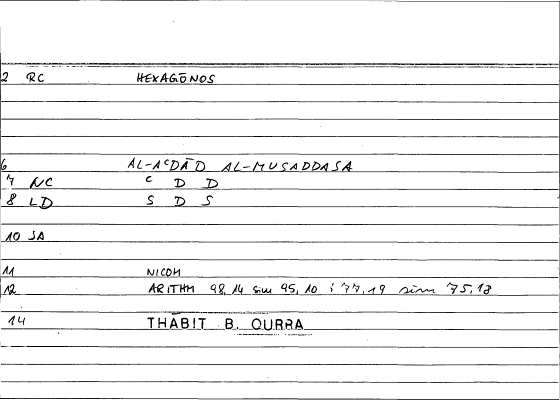 2 RC HEXAGŌNOS
6 AL-AᶜDĀD AL-MUSADDASA
7 NC ᶜ D D
8 LD S D S
10 SA
11 NICOM
12 ARITHM 98,14 sim 95,10 ; 77,19 sim 75,13
14 THĀBIT B. QURRA